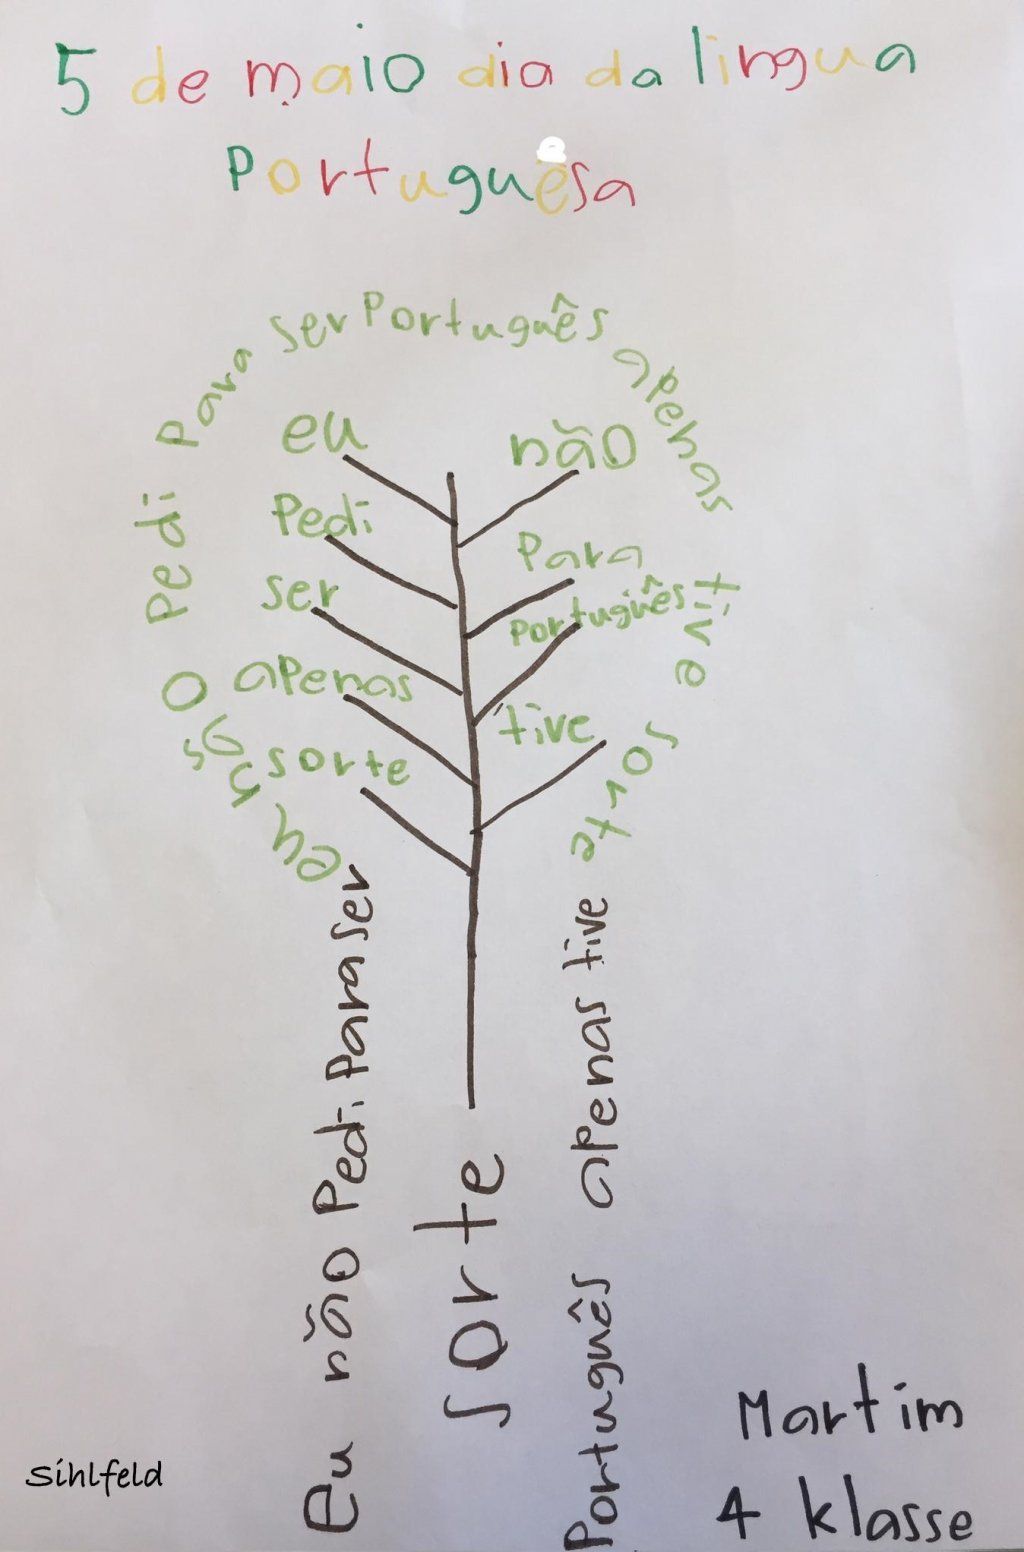 5 de maio dia da lingua
Portuguesa
eu não Pedi Para ser Português apenas tive sorte
eu
não
Pedi
Para
ser
Português
apenas
tive
sorte
Eu não Pedi Para ser
sorte
Português apenas tive
Martim
4 klasse
Sihlfeld